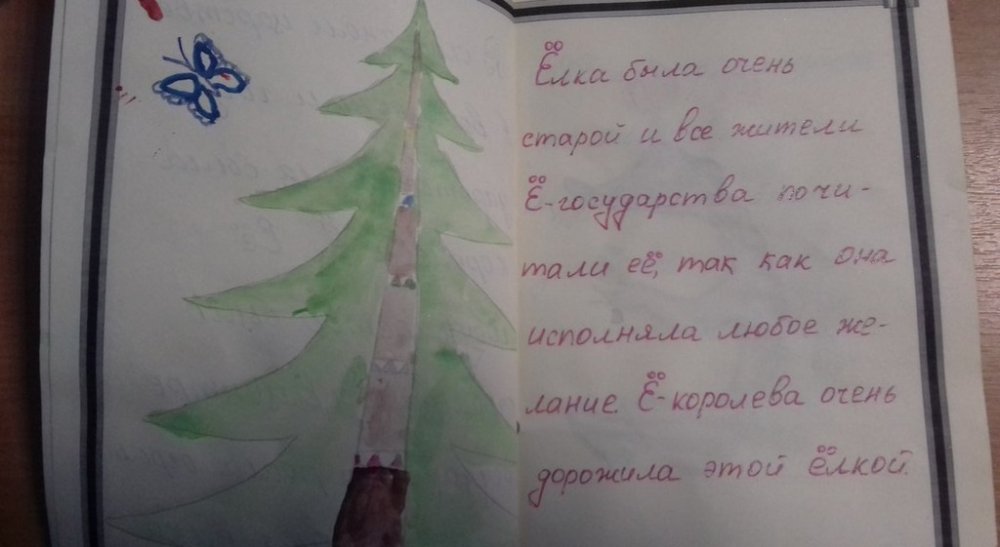 Ёлка была очень
старой и все жители
Ё-государства почи-
тали её, так как она
исполняла любое же-
лание. Ё-королева очень
дорожила этой ёлкой.